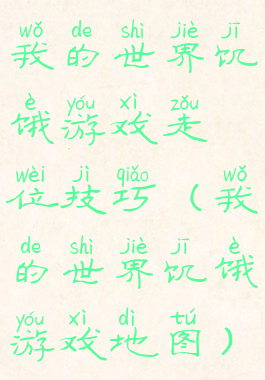 wǒ de shì jiè jī
我的世界饥
è yóu xì zǒu
饿游戏走
wèi jì qiǎo wǒ
位技巧（我
de shì jiè jī è
的世界饥饿
yóu xì dì tú
游戏地图）